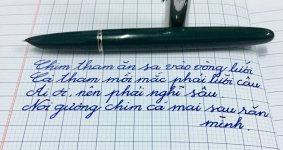 Chim tham ăn sa vào vòng lưới
Cá tham mồi mắc phải lưỡi câu
Ai ơi, nên phải nghĩ sâu
Nơi gương chim cá mai sau răn
mình.